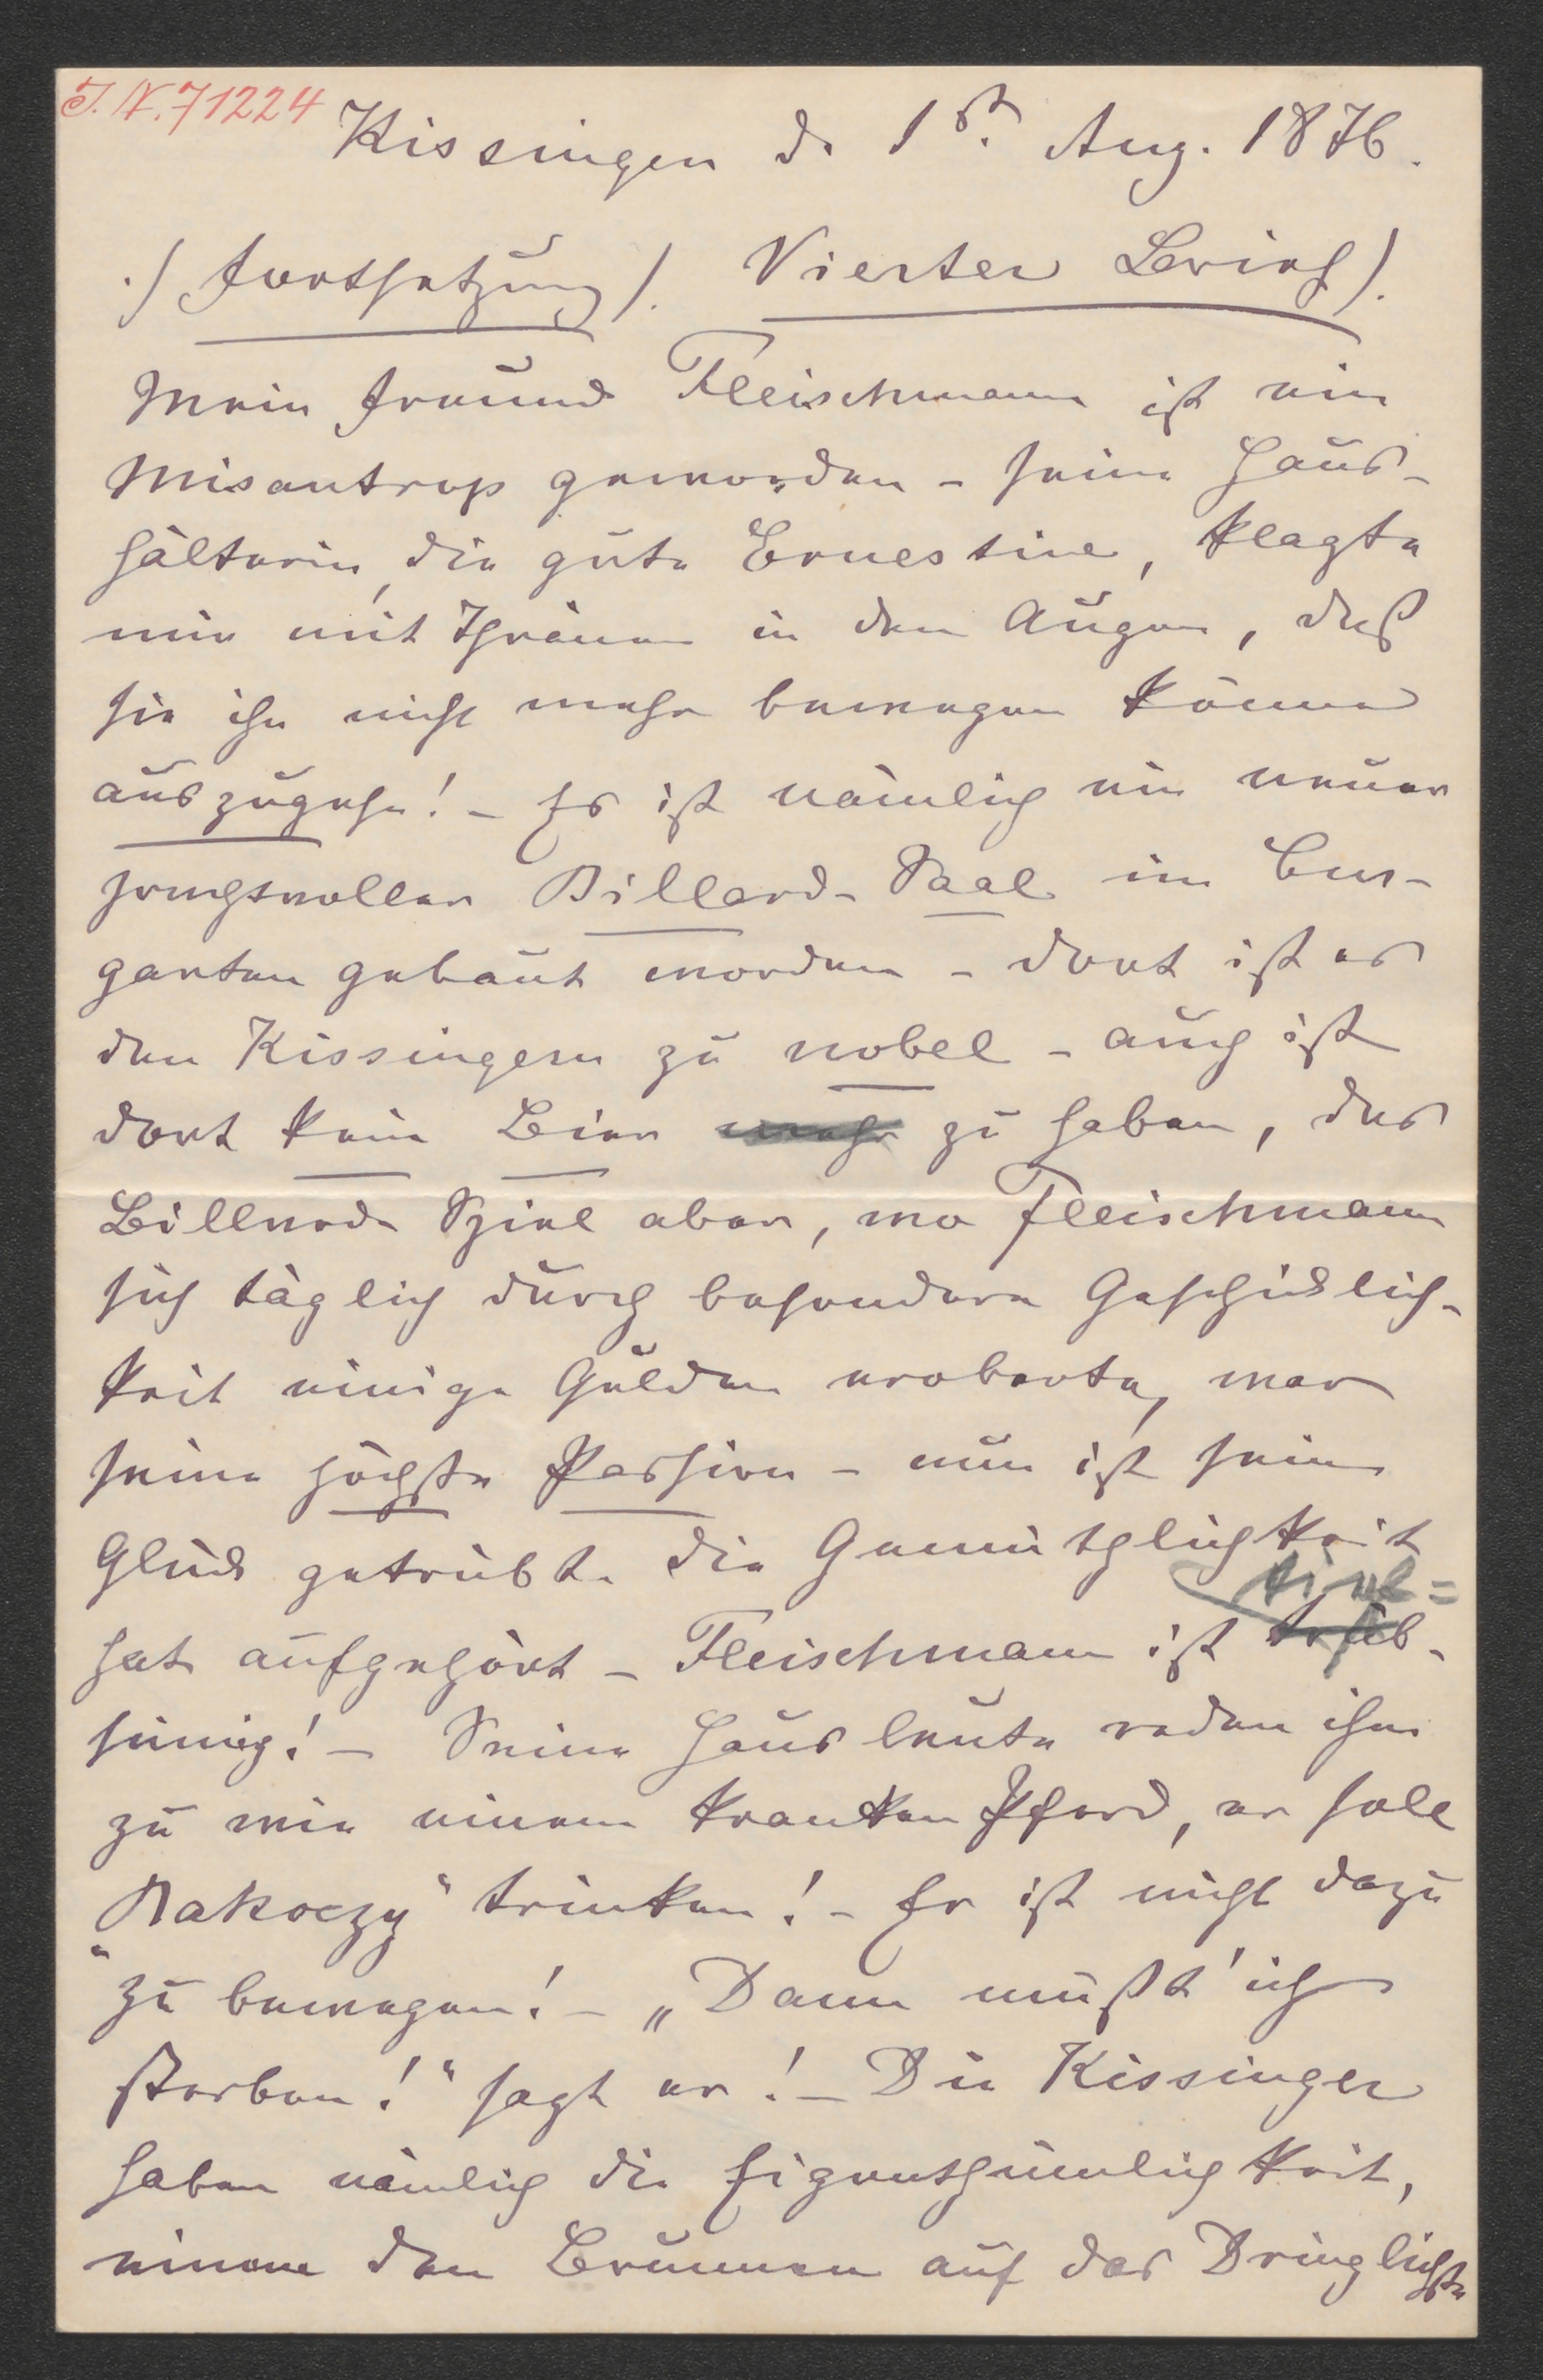 J. N. 71224
Kissingen d. 1st. Aug. 1876.
./ Fortsetzung /. Vierter Brief).
Mein Freund Fleischmann ist ein
Misantrop geworden – seine Haus-
hälterin, die gute Ernestine, klagte
mir mit Thränen in den Augen, daß
sie ihn nicht mehr bewegen könne
auszugehn! – Es ist nämlich ein neuer
prachtvoller Billard-Saal im Cur-
garten gebaut worden – dort ist es
den Kissingern zu nobel – auch ist
dort kein Bier mehr zu haben, das
Billard Spiel aber, wo Fleischmann
sich täglich durch besondere Geschicklich-
keit einige Gulden eroberte, war
seine höchste Passion – nun ist sein
Glück getrübt. Die Gemüthlichkeit
tief=
hat aufgehört – Fleischmann ist trüb-
sinnig! – Seine Hausleute reden ihm
zu wie einem kranken Pferd, er soll
„Rakoczy“ trinken! – Er ist nicht dazu
zu bewegen! – „Dann müßt' ich
sterben!“ sagt er! – Die Kissinger
haben nämlich die Eigenthümlichkeit,
einem den Brunnen auf das Dringlichste